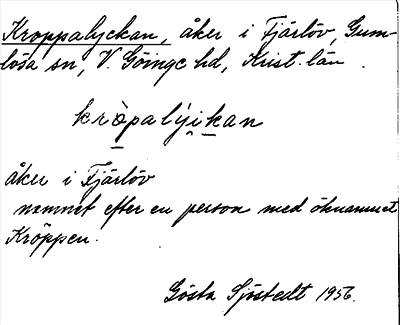 Kroppalyckan, åker i Fjärlöv, Gum-
lösa sn, V. Göinge hd, Krist. län.
kròpalýikan
åker i Fjärlöv
namnet efter en person med öknamnet
Kröppen.
Gösta Sjöstedt 1956.